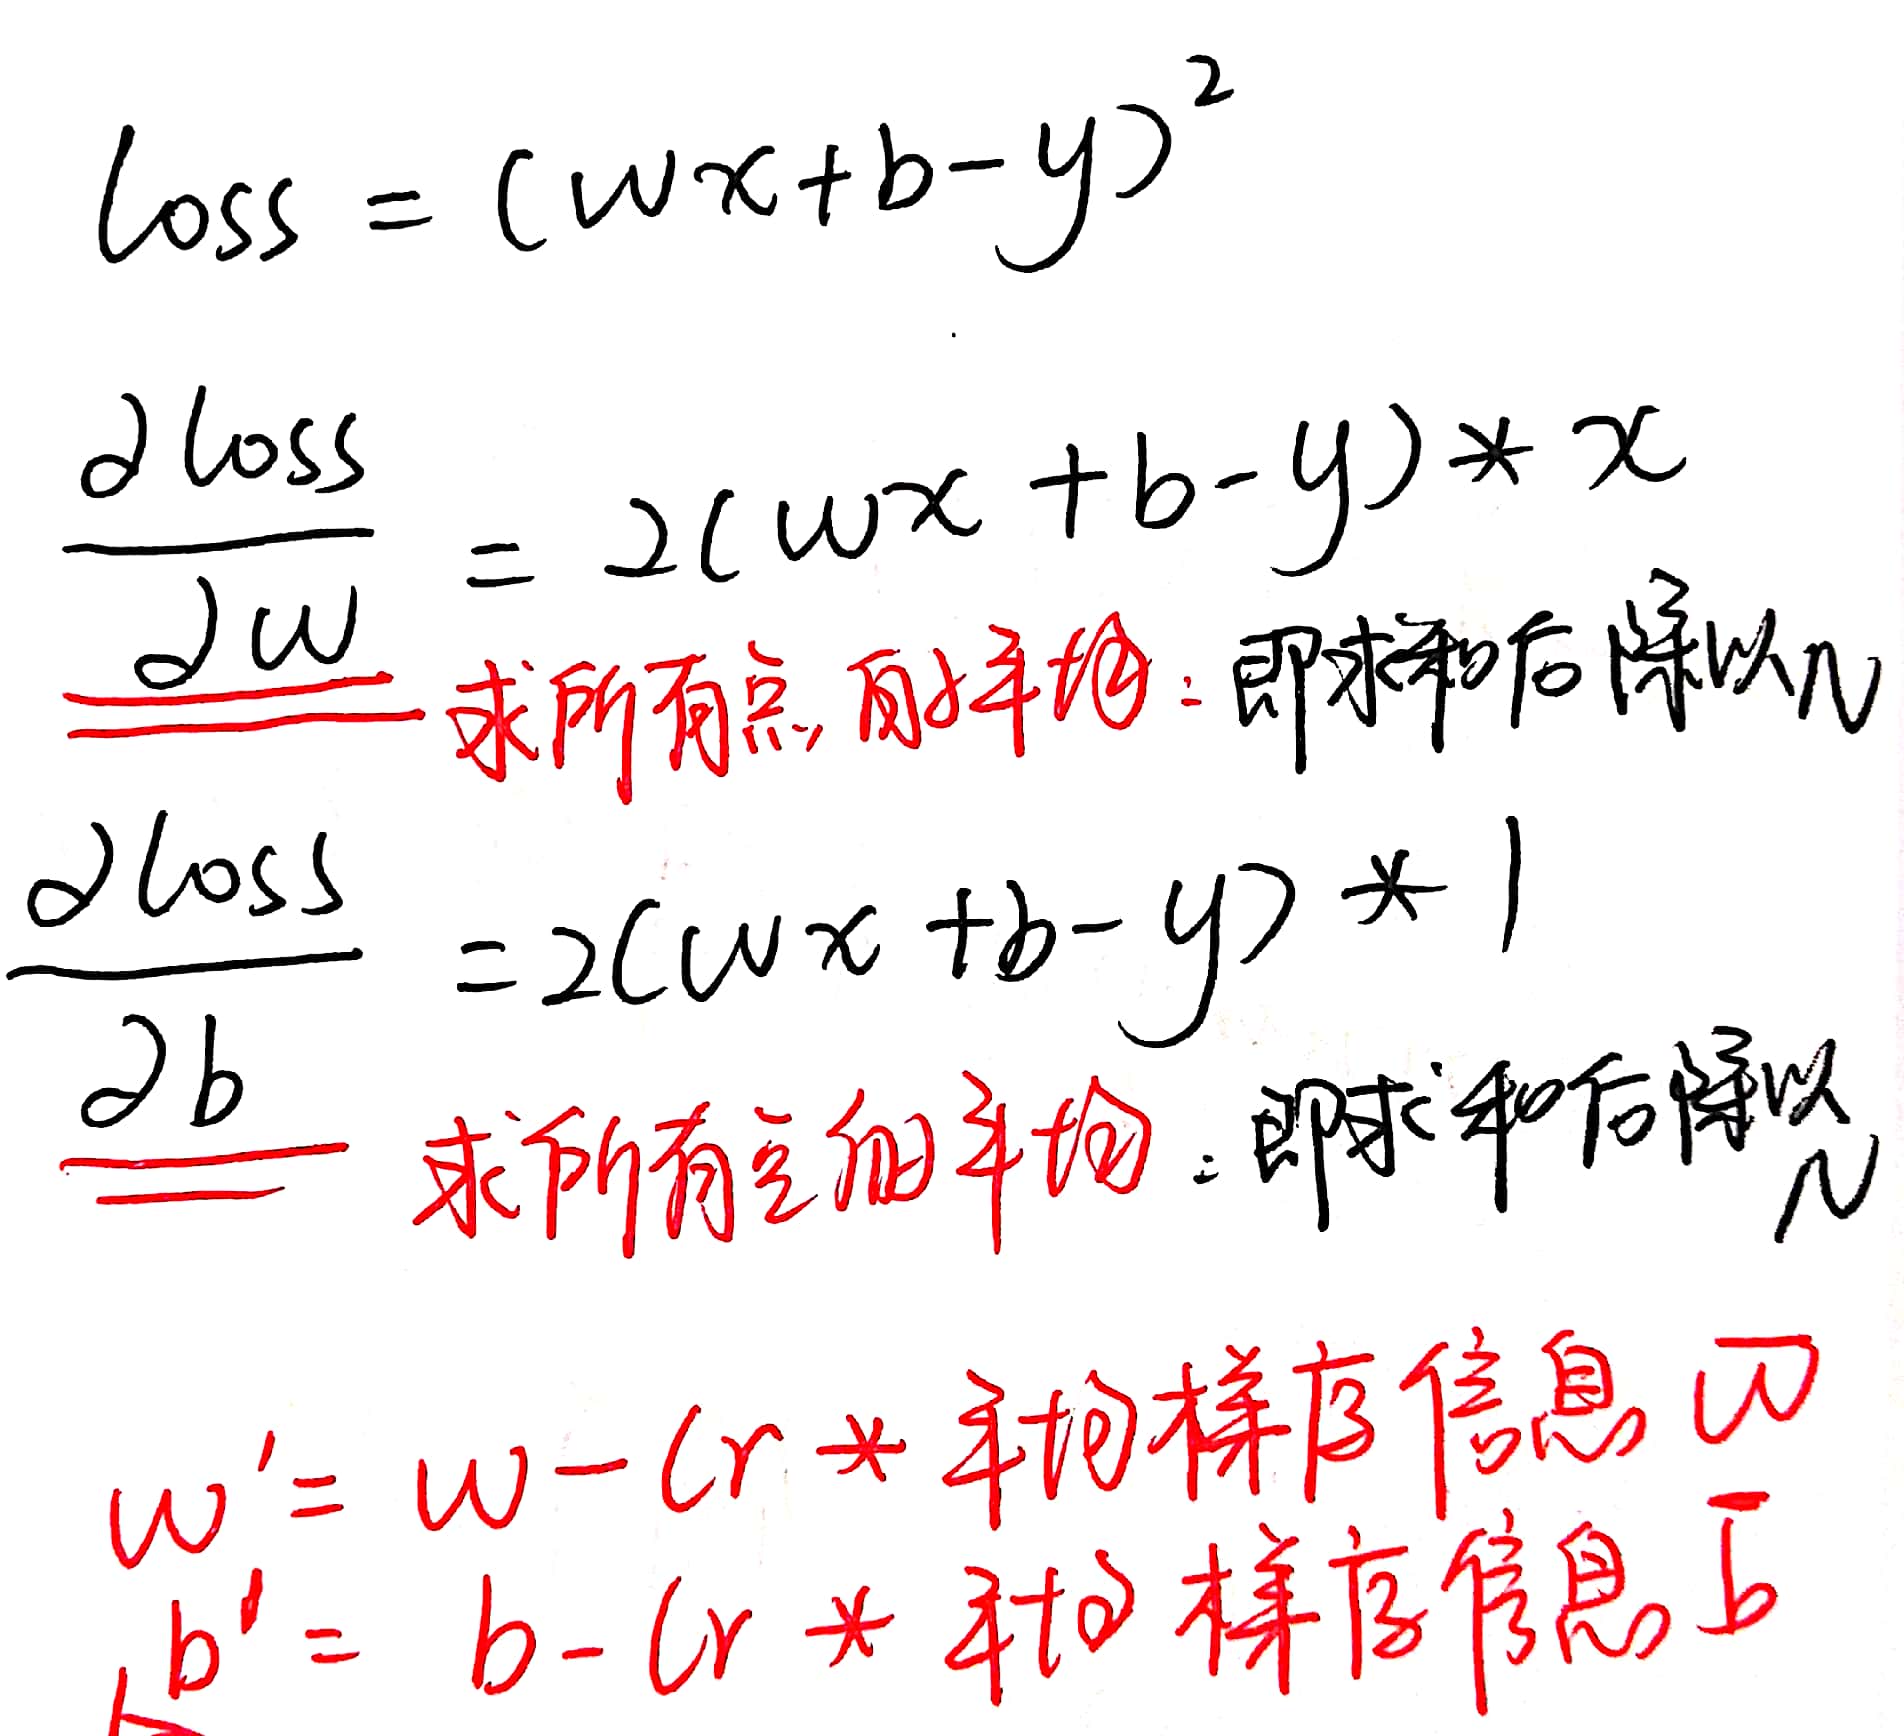 loss = (wx+b-y)²
∂loss/∂w = 2(wx+b-y)*x
求所有点的平均：即求和后除以N
∂loss/∂b = 2(wx+b-y)*1
求所有点的平均：即求和后除以N
w' = w-lr * 平均样存信息 w̅
b' = b-lr * 平均样存信息 b̅